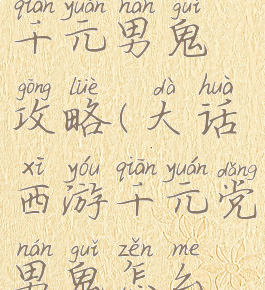 qiān yuán nán guǐ
千元男鬼
gōng lüè dà huà
攻略(大话
xī yóu qiān yuán dǎng
西游千元党
nán guǐ zěn me
男鬼怎么